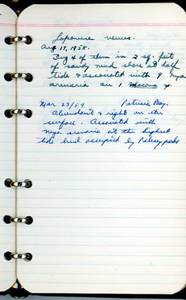 Japonica venus.
Aug 17, 1958.
Dug 4 of them in 2 sq. feet
of sandy mud shore at half
tide & associated with 9 mya
arenaria an 1
Mar 23/59 Patricia Bay.
Abundant & right on the
surface. Associated with
mya arenaria at the highest
tide level occupied by Pelecypods